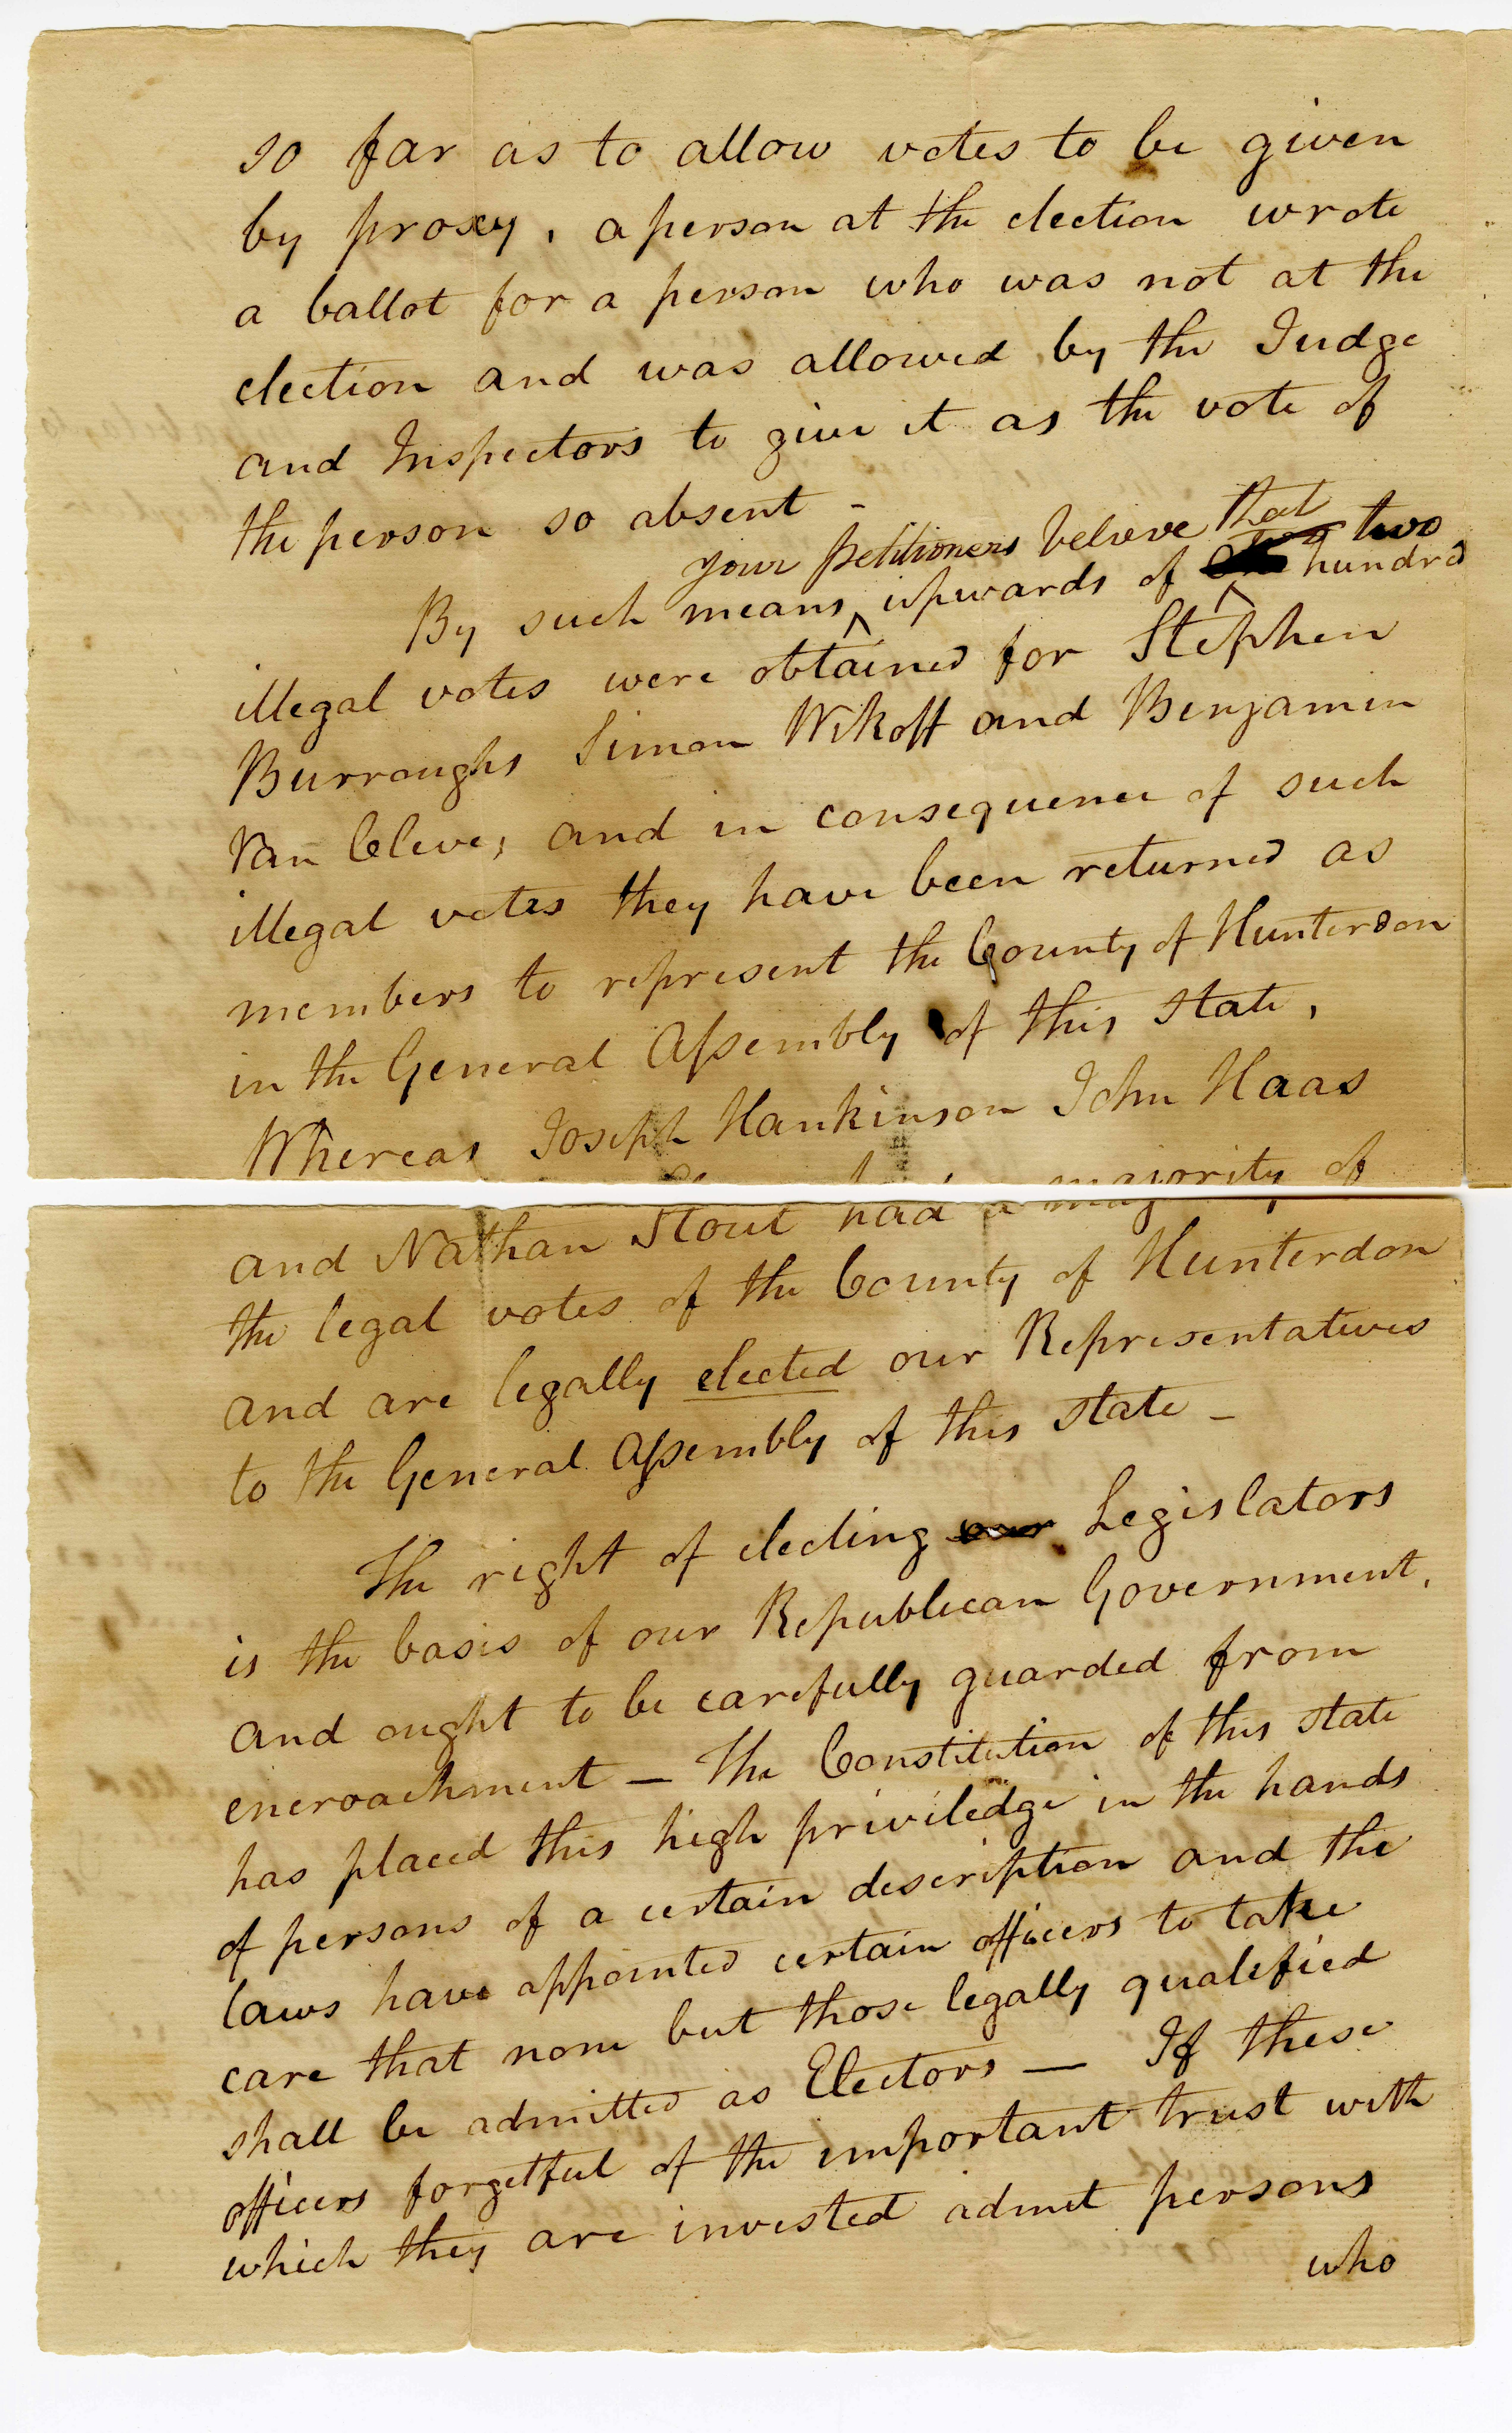 so far as to allow votes to be given
by proxy, a person at the election wrote
a ballot for a person who was not at the
election and was allowed by the Judge
and Inspectors to give it as the vote of
the person so absent –
your petitioners believe that two
By such means ‸ upwards of hundred
illegal votes were obtained for Stephen
Burroughs Simon Wikoff and Benjamin
Van Cleve; and in consequence of such
illegal votes they have been returned as
members to represent the County of Hunterdon
in the General Assembly of this State,
Whereas Joseph Hankinson John Haas
and Nathan Stout had a majority of
the legal votes of the County of Hunterdon
and are legally elected our Representatives
to the General Assembly of this State –
The right of electing our Legislators
is the basis of our Republican Government,
and ought to be carefully guarded from
encroachment — The Constitution of this State
has placed this high priviledge in the hands
of persons of a certain description and the
laws have appointed certain officers to take
care that none but those legally qualified
shall be admitted as Electors — If these
officers forgetful of the important trust with
which they are invested admit persons
who